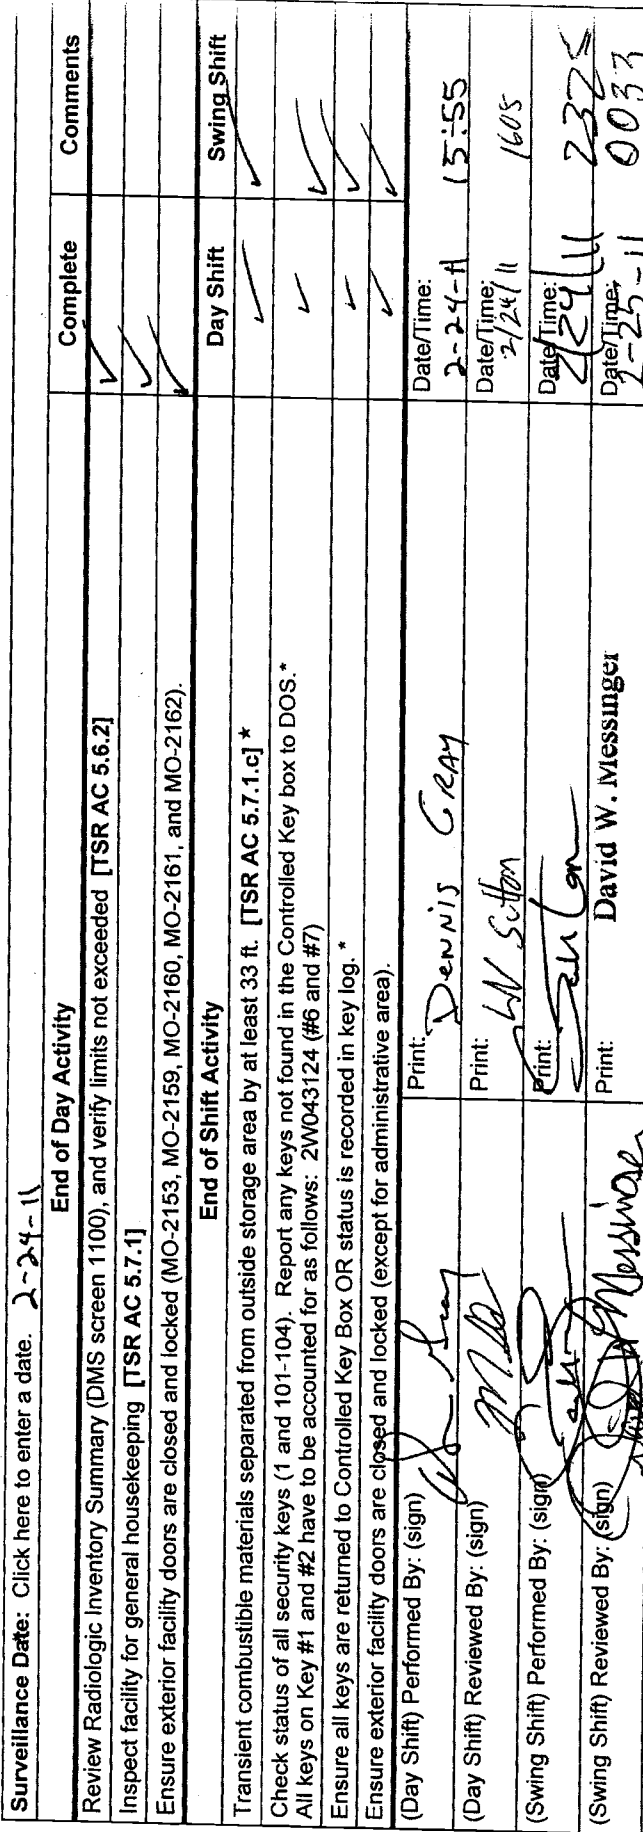 Surveillance Date: Click here to enter a date. 2-24-11
End of Day Activity Complete Comments
Review Radiologic Inventory Summary (DMS screen 1100), and verify limits not exceeded [TSR AC 5.6.2] ✓
Inspect facility for general housekeeping [TSR AC 5.7.1] ✓
Ensure exterior facility doors are closed and locked (MO-2153, MO-2159, MO-2160, MO-2161, and MO-2162). ✓
End of Shift Activity Day Shift Swing Shift
Transient combustible materials separated from outside storage area by at least 33 ft. [TSR AC 5.7.1.c] * ✓ ✓
Check status of all security keys (1 and 101-104). Report any keys not found in the Controlled Key box to DOS.*
All keys on Key #1 and #2 have to be accounted for as follows: 2W043124 (#6 and #7) ✓ ✓
Ensure all keys are returned to Controlled Key Box OR status is recorded in key log.* ✓ ✓
Ensure exterior facility doors are closed and locked (except for administrative area). ✓ ✓
(Day Shift) Performed By: (sign) Print: Dennis Gray Date/Time: 2-24-11 15:55
(Day Shift) Reviewed By: (sign) Print: Sutton Date/Time: 2/24/11 1605
(Swing Shift) Performed By: (sign) Print: Date/Time: 2/24/11 2325
(Swing Shift) Reviewed By: (sign) Messinger Print: David W. Messinger Date/Time: 2-25-11 0033